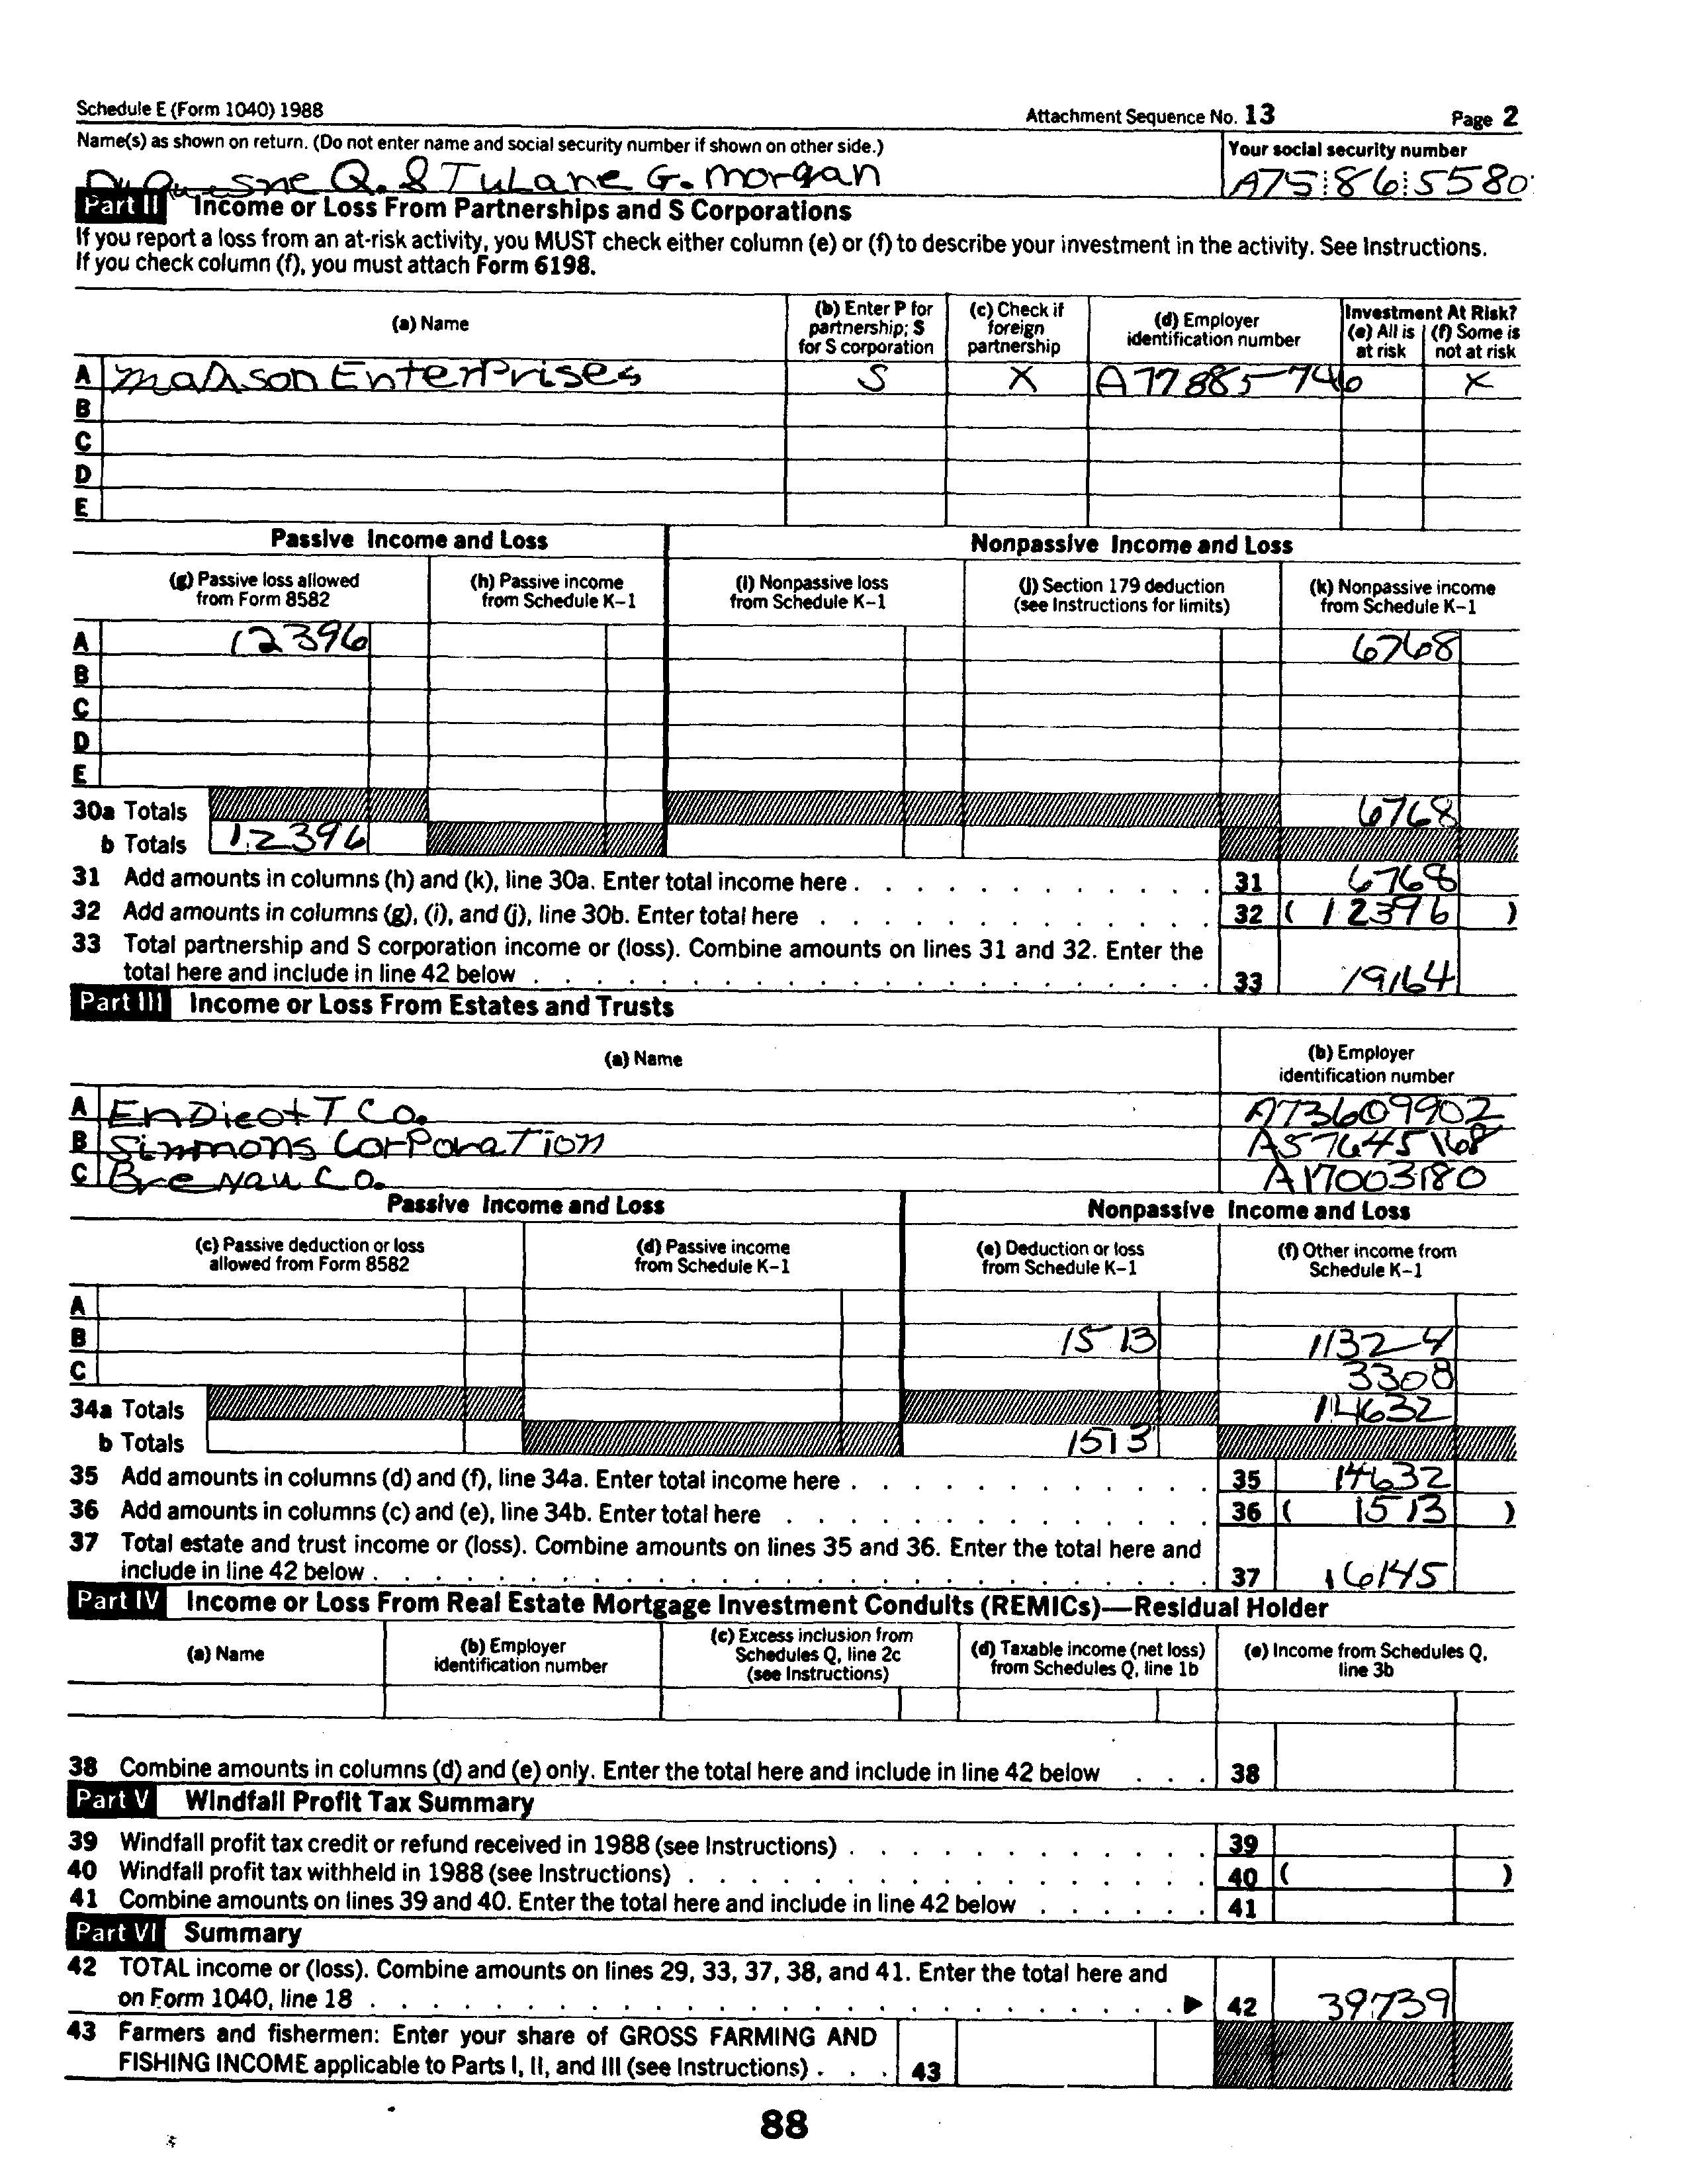 Schedule E (Form 1040) 1988 Attachment Sequence No. 13 Page 2
Name(s) as shown on return. (Do not enter name and social security number if shown on other side.) Your social security number
DuQuesne Q. & TuLane G. morgan A75 86 5580
Part II Income or Loss From Partnerships and S Corporations
If you report a loss from an at-risk activity, you MUST check either column (e) or (f) to describe your investment in the activity. See Instructions.
If you check column (f), you must attach Form 6198.
(a) Name (b) Enter P for partnership; S for S corporation (c) Check if foreign partnership (d) Employer identification number Investment At Risk? (e) All is at risk (f) Some is not at risk
A EnTerPrises S X A77885746 X
B
C
D
E
Passive Income and Loss Nonpassive Income and Loss
(g) Passive loss allowed from Form 8582 (h) Passive income from Schedule K-1 (i) Nonpassive loss from Schedule K-1 (j) Section 179 deduction (see Instructions for limits) (k) Nonpassive income from Schedule K-1
A 12396 6768
B
C
D
E
30a Totals 6768
b Totals 12396
31 Add amounts in columns (h) and (k), line 30a. Enter total income here 31 6768
32 Add amounts in columns (g), (i), and (j), line 30b. Enter total here 32 ( 12396 )
33 Total partnership and S corporation income or (loss). Combine amounts on lines 31 and 32. Enter the
total here and include in line 42 below 33 19164
Part III Income or Loss From Estates and Trusts
(a) Name (b) Employer identification number
A EnDicotT Co. A73609902
B Simmons CorPoraTion A57645168
C Brenau Co. A17003180
Passive Income and Loss Nonpassive Income and Loss
(c) Passive deduction or loss allowed from Form 8582 (d) Passive income from Schedule K-1 (e) Deduction or loss from Schedule K-1 (f) Other income from Schedule K-1
A
B 1513 11324
C 3308
34a Totals 14632
b Totals 1513
35 Add amounts in columns (d) and (f), line 34a. Enter total income here 35 14632
36 Add amounts in columns (c) and (e), line 34b. Enter total here 36 ( 1513 )
37 Total estate and trust income or (loss). Combine amounts on lines 35 and 36. Enter the total here and
include in line 42 below 37 16145
Part IV Income or Loss From Real Estate Mortgage Investment Conduits (REMICs)—Residual Holder
(a) Name (b) Employer identification number (c) Excess inclusion from Schedules Q, line 2c (see Instructions) (d) Taxable income (net loss) from Schedules Q, line 1b (e) Income from Schedules Q, line 3b
38 Combine amounts in columns (d) and (e) only. Enter the total here and include in line 42 below 38
Part V Windfall Profit Tax Summary
39 Windfall profit tax credit or refund received in 1988 (see Instructions) 39
40 Windfall profit tax withheld in 1988 (see Instructions) 40 ( )
41 Combine amounts on lines 39 and 40. Enter the total here and include in line 42 below 41
Part VI Summary
42 TOTAL income or (loss). Combine amounts on lines 29, 33, 37, 38, and 41. Enter the total here and
on Form 1040, line 18 42 39739
43 Farmers and fishermen: Enter your share of GROSS FARMING AND
FISHING INCOME applicable to Parts I, II, and III (see Instructions) 43
88